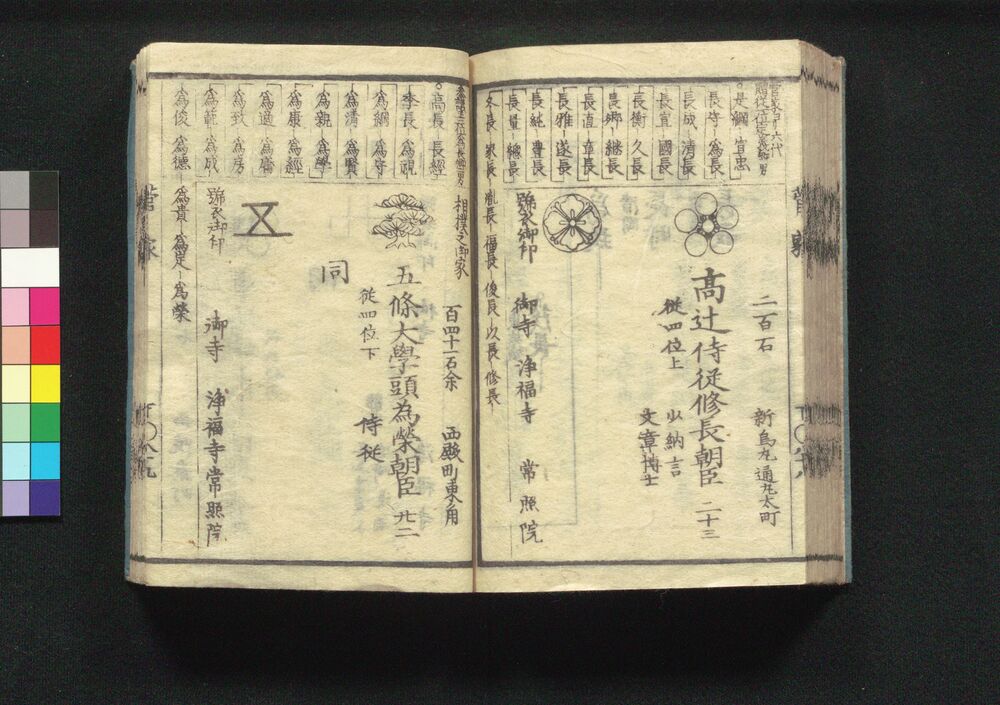 是綱 宣忠
長守 為長
長成 清長
長宣 國長
長衡 久長
長郷 継長
長直 章長
長雅 遂長
長純 豊長
長量 總長
冬長 家長 胤長 福長 俊長 以長 修長
二百石 新烏丸通丸太町
高辻侍従修長朝臣 二十三
従四位上 少納言
文章博士
御寺 浄福寺 常照院
高長 長經
季長 為視
為綱 為守
為清 為賢
為親 為學
為康 為經
為適 為庸
為致 為房
為範 為成
為俊 為德
為貴 為定 為榮
相撲之御家
百四十一石余 西殿町東角
五條大學頭為榮朝臣 廿二
従四位下 侍従
同
御寺 浄福寺常照院